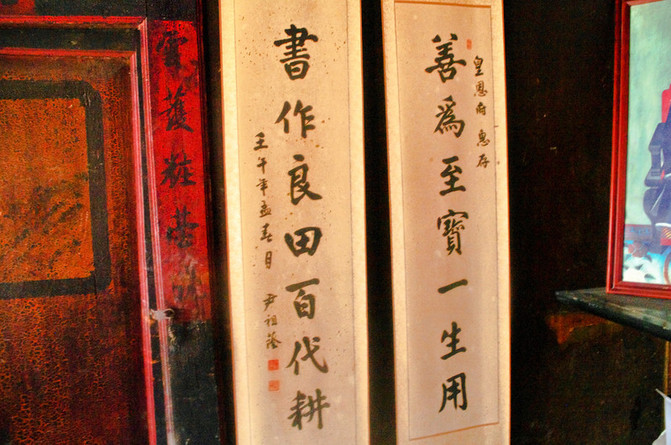 皇恩府 惠存
善為至寶一生用
書作良田百代耕
壬午年孟春月 尹祖蔭